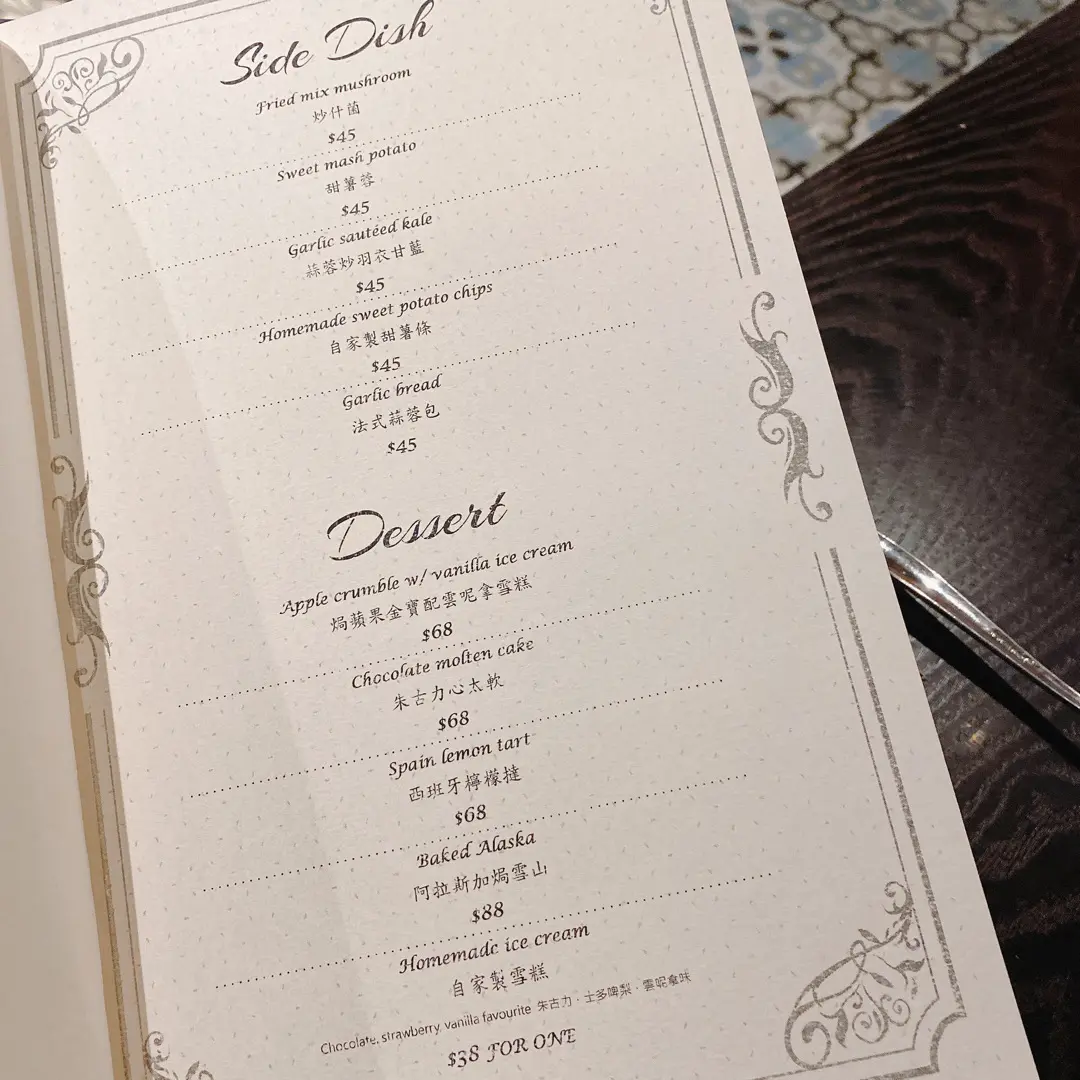 Side Dish
Fried mix mushroom
炒什菌
$45
Sweet mash potato
甜薯蓉
$45
Garlic sauteed kale
蒜蓉炒羽衣甘藍
$45
Homemade sweet potato chips
自家製甜薯條
$45
Garlic bread
法式蒜蓉包
$45
Dessert
Apple crumble w/ vanilla ice cream
焗蘋果金寶配雲呢拿雪糕
$68
Chocolate molten cake
朱古力心太軟
$68
Spain lemon tart
西班牙檸檬撻
$68
Baked Alaska
阿拉斯加焗雪山
$88
Homemade ice cream
自家製雪糕
Chocolate, strawberry, vanilla favourite 朱古力‧士多啤梨‧雲呢拿味
$38 FOR ONE